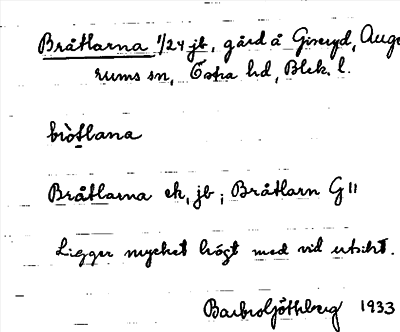 Bråtlarna 1/24 jb, gård å Giseryd, Auge
rums sn, Östra hd, Blek. l.
bròtlana
Bråtlarna ek, jb; Bråtlarn G11
Ligger mycket högt med vid utsikt.
Barbro Göthberg 1933